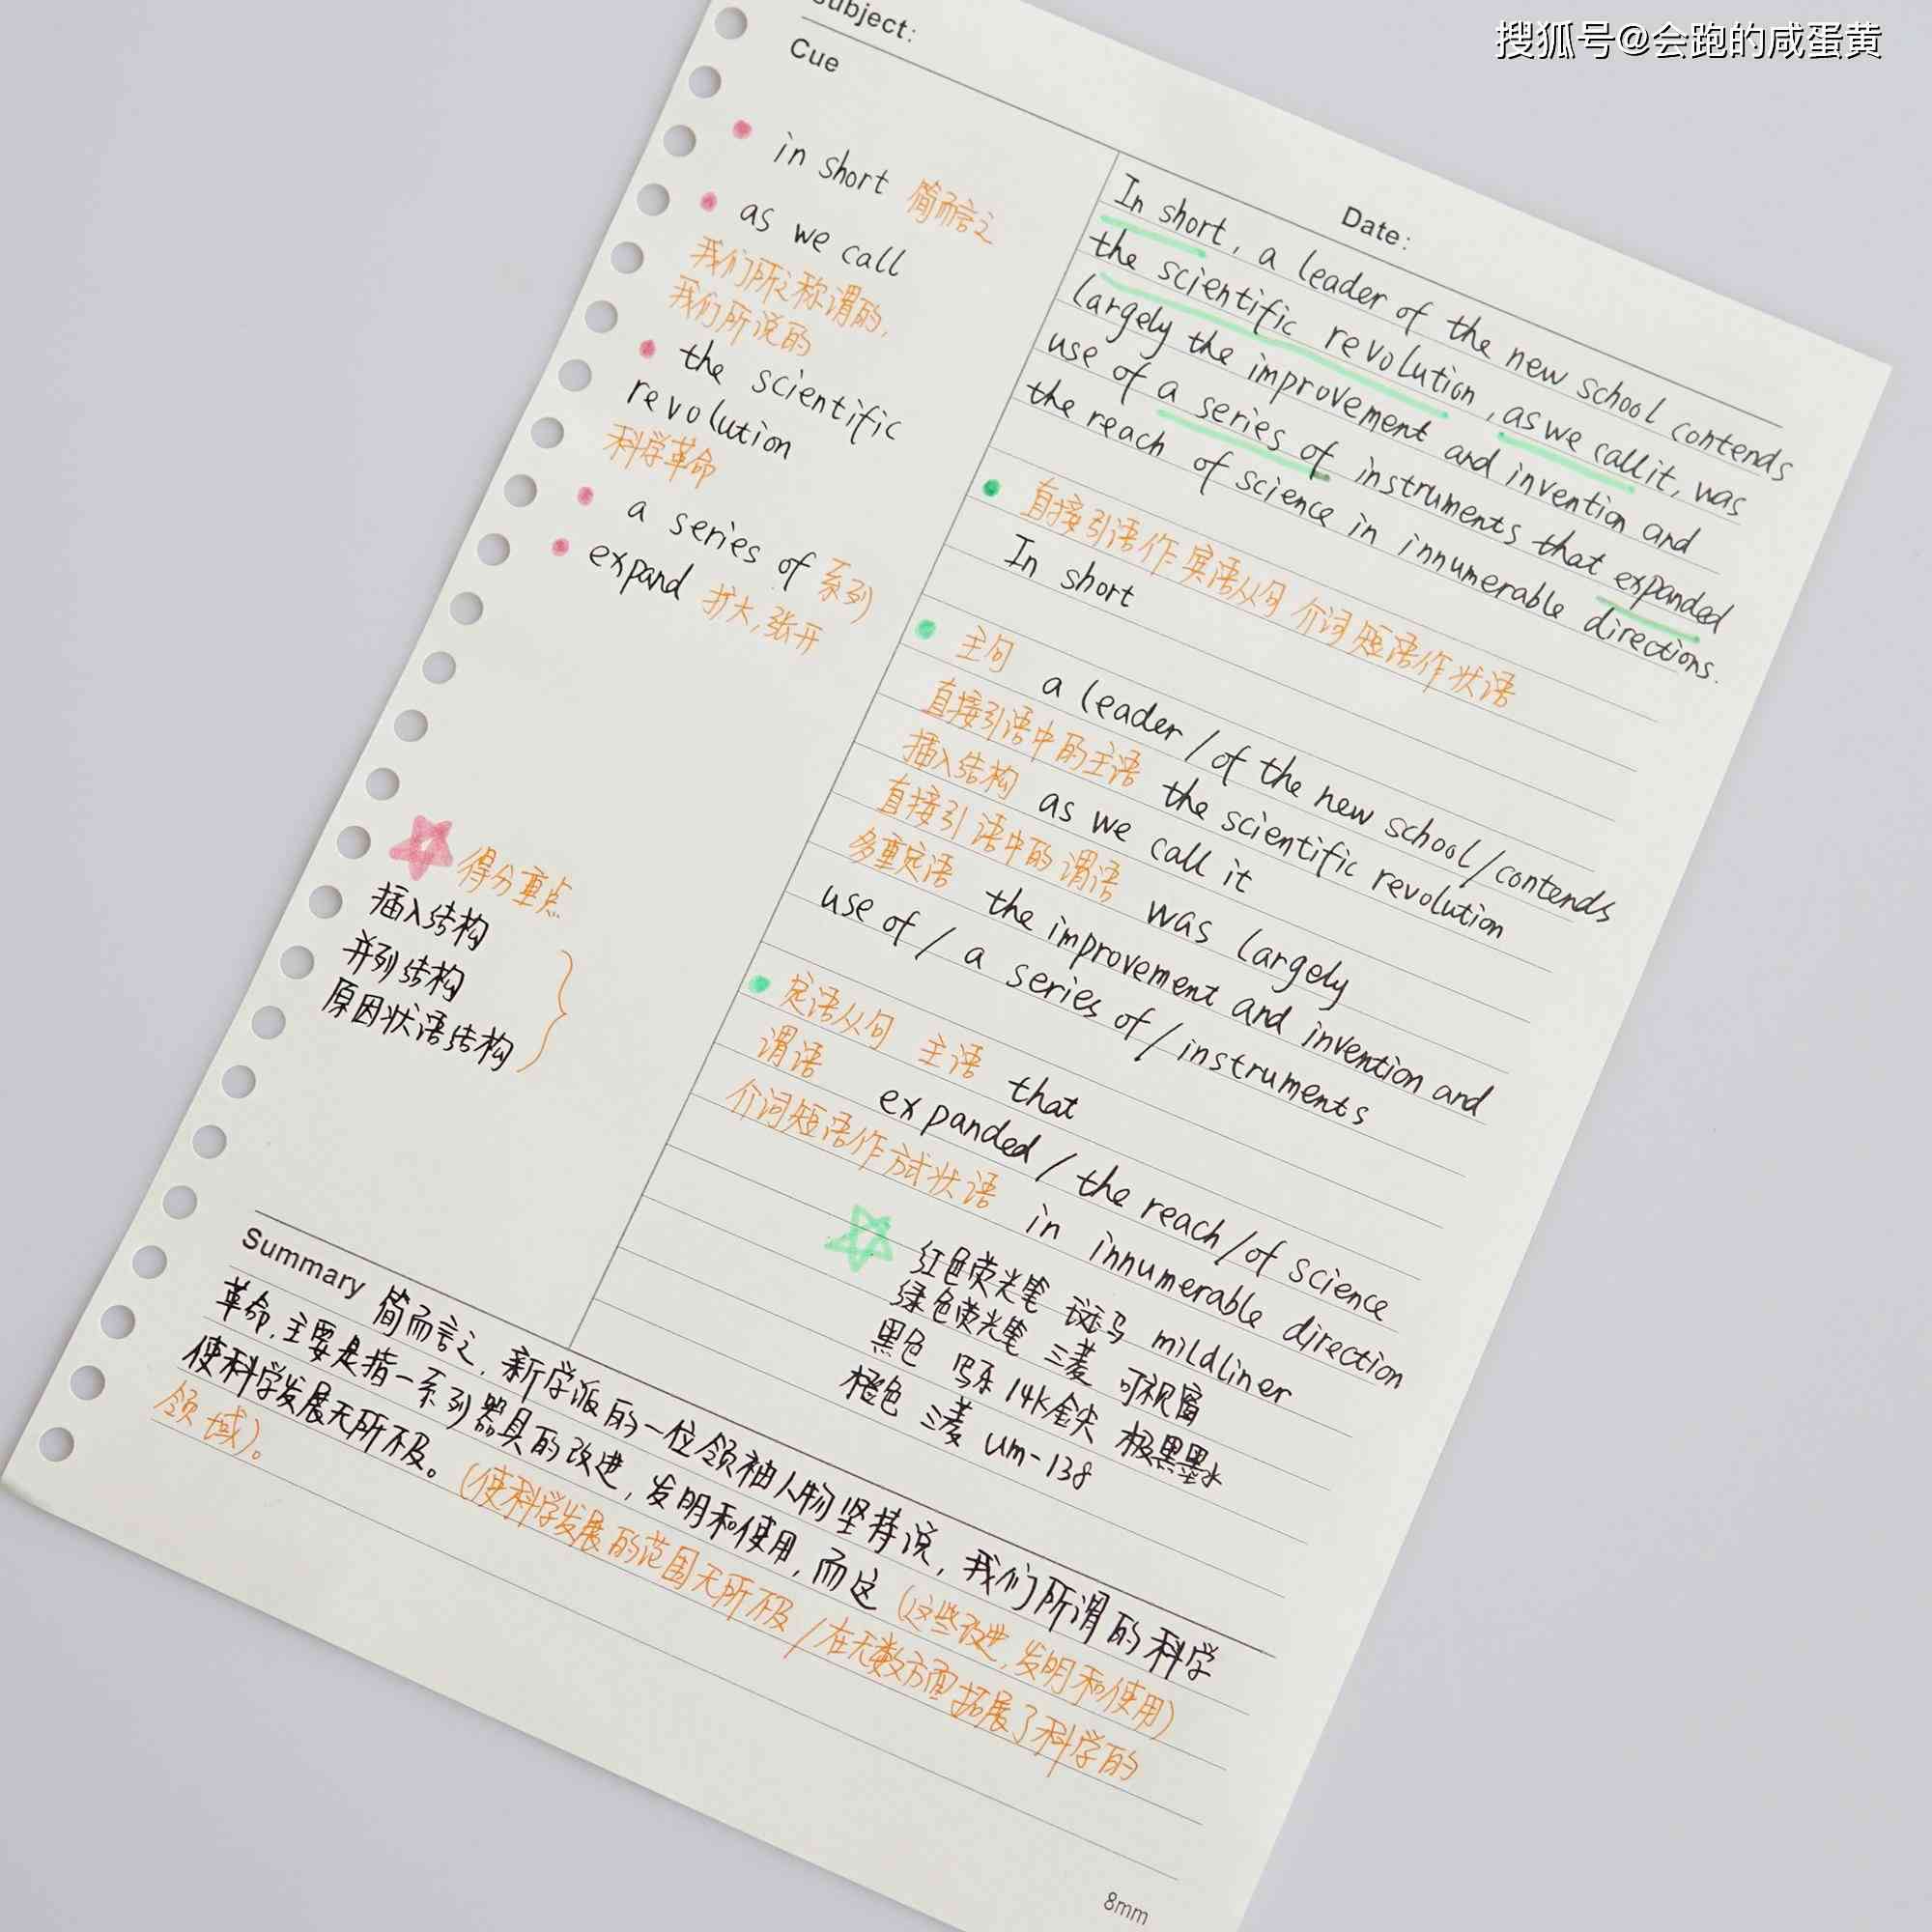 搜狐号@会跑的咸蛋黄
Subject:
Date:
Cue
in short 简而言之
as we call
我们所之称谓的,
我们所说的
the scientific
revolution
科学革命
a series of 系列
expand 扩大,张开
得分重点
插入结构
并列结构
原因状语结构
In short, a leader of the new school contends
the scientific revolution, as we call it, was
largely the improvement and invention and
use of a series of instruments that expanded
the reach of science in innumerable directions.
直接引语作宾语从句 介词短语作状语
In short
主句 a leader/of the new school/contends
直接引语中的主语 the scientific revolution
插入结构 as we call it
直接引语中的谓语 was largely
多重定语 the improvement and invention and
use of / a series of / instruments
定语从句 主语 that
谓语 expanded / the reach/of science
介词短语作方式状语 in innumerable direction
红色荧光笔 斑马 mildliner
绿色荧光笔 三菱 可视窗
黑色 写乐 14k金尖 极黑墨水
橙色 三菱 um-138
Summary 简而言之,新学派的一位领袖人物坚持说,我们所谓的科学
革命,主要是指一系列器具的改进,发明和使用,而这(这些改进,发明和使用)
使科学发展无所不及。(使科学发展的范围无所不及/在无数方面拓展了科学的
领域)。
8mm